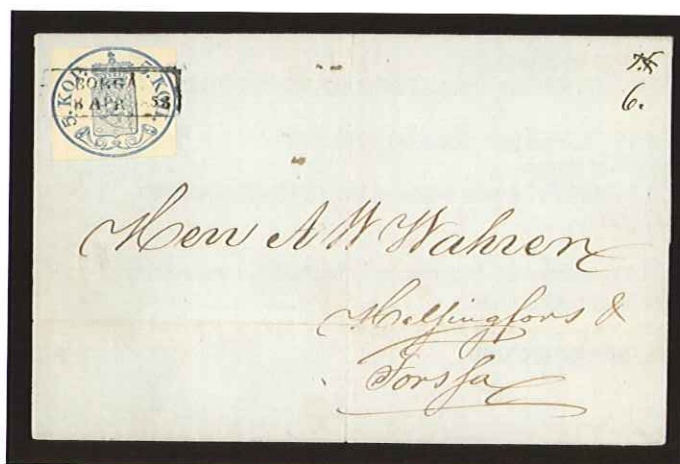 5. KOP. 5. KOP.
BORGÅ
8 APR. 1858
6.
Herr A W Wahren
Helsingfors &
Forssa